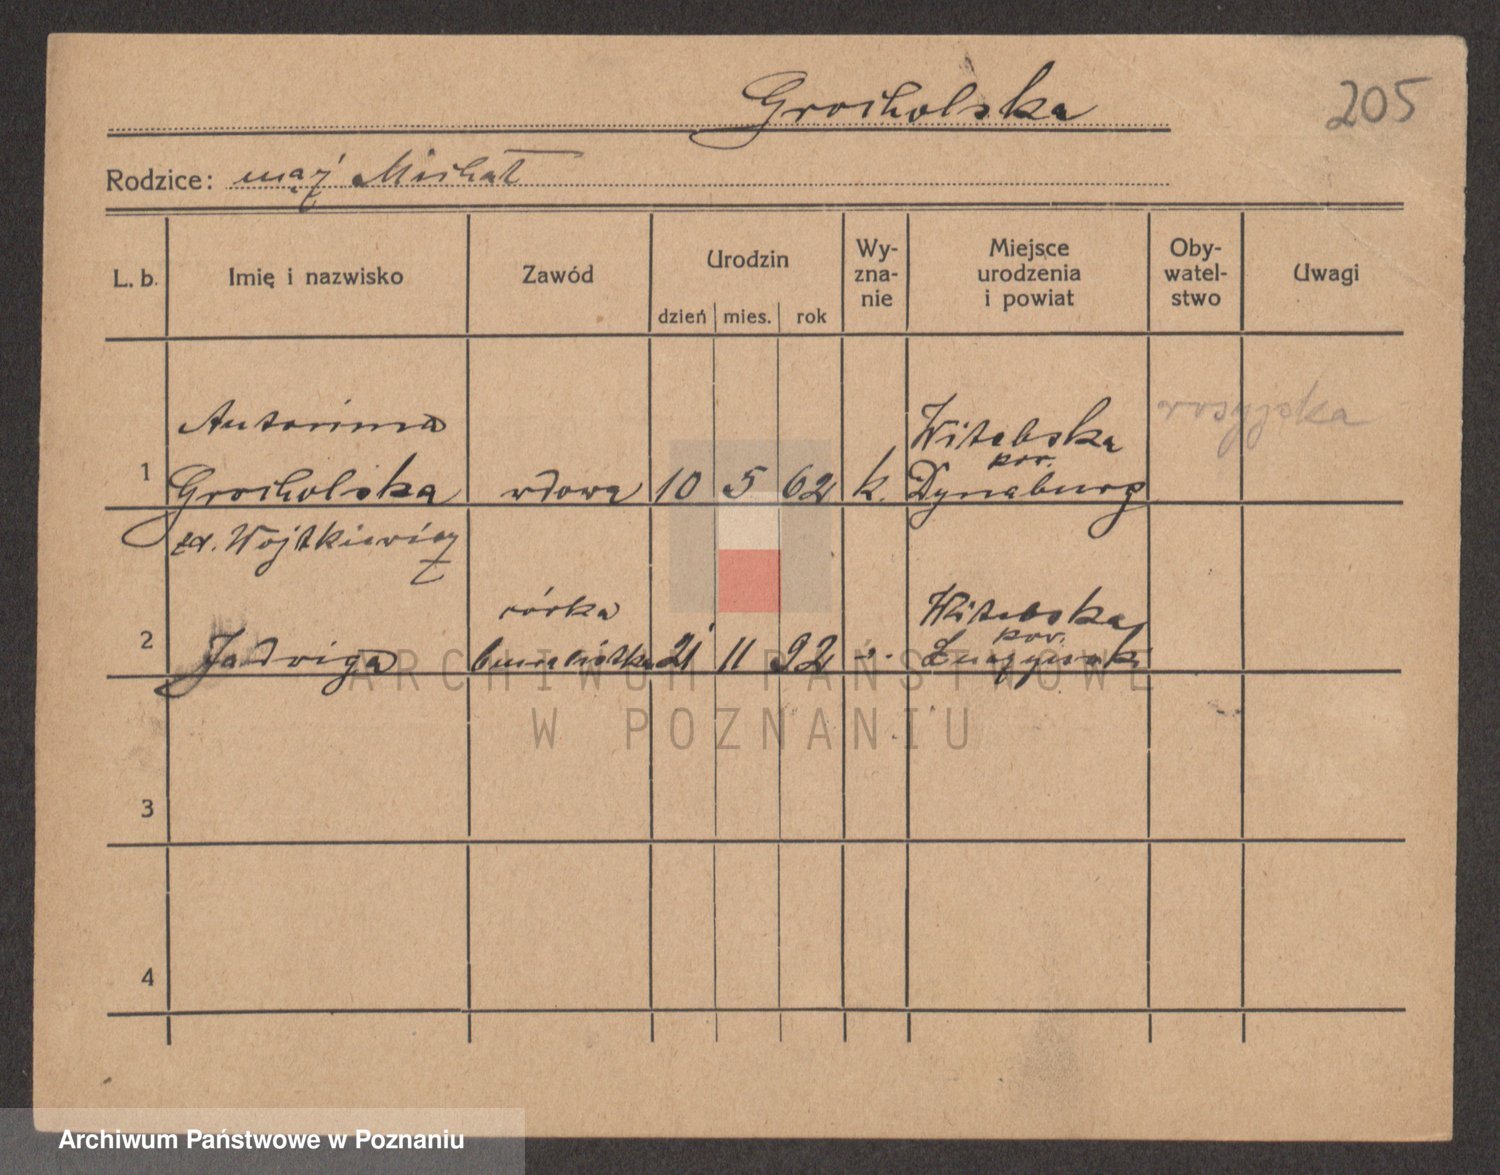 Grocholska
205
Rodzice: mąż Michał
L. b.
Imię i nazwisko
Zawód
Urodzin
dzień mies. rok
Wy-
zna-
nie
Miejsce
urodzenia
i powiat
Oby-
watel-
stwo
Uwagi
Antonina
Witebska
rosyjska
pow.
1 Grocholska wdowa 10 5 62 k. Dynaburg
Wojtkiewicz
córka
Witebska
pow.
2 Jadwiga 21 11 92
3
4
ARCHIWUM PAŃSTWOWE
W POZNANIU
Archiwum Państwowe w Poznaniu